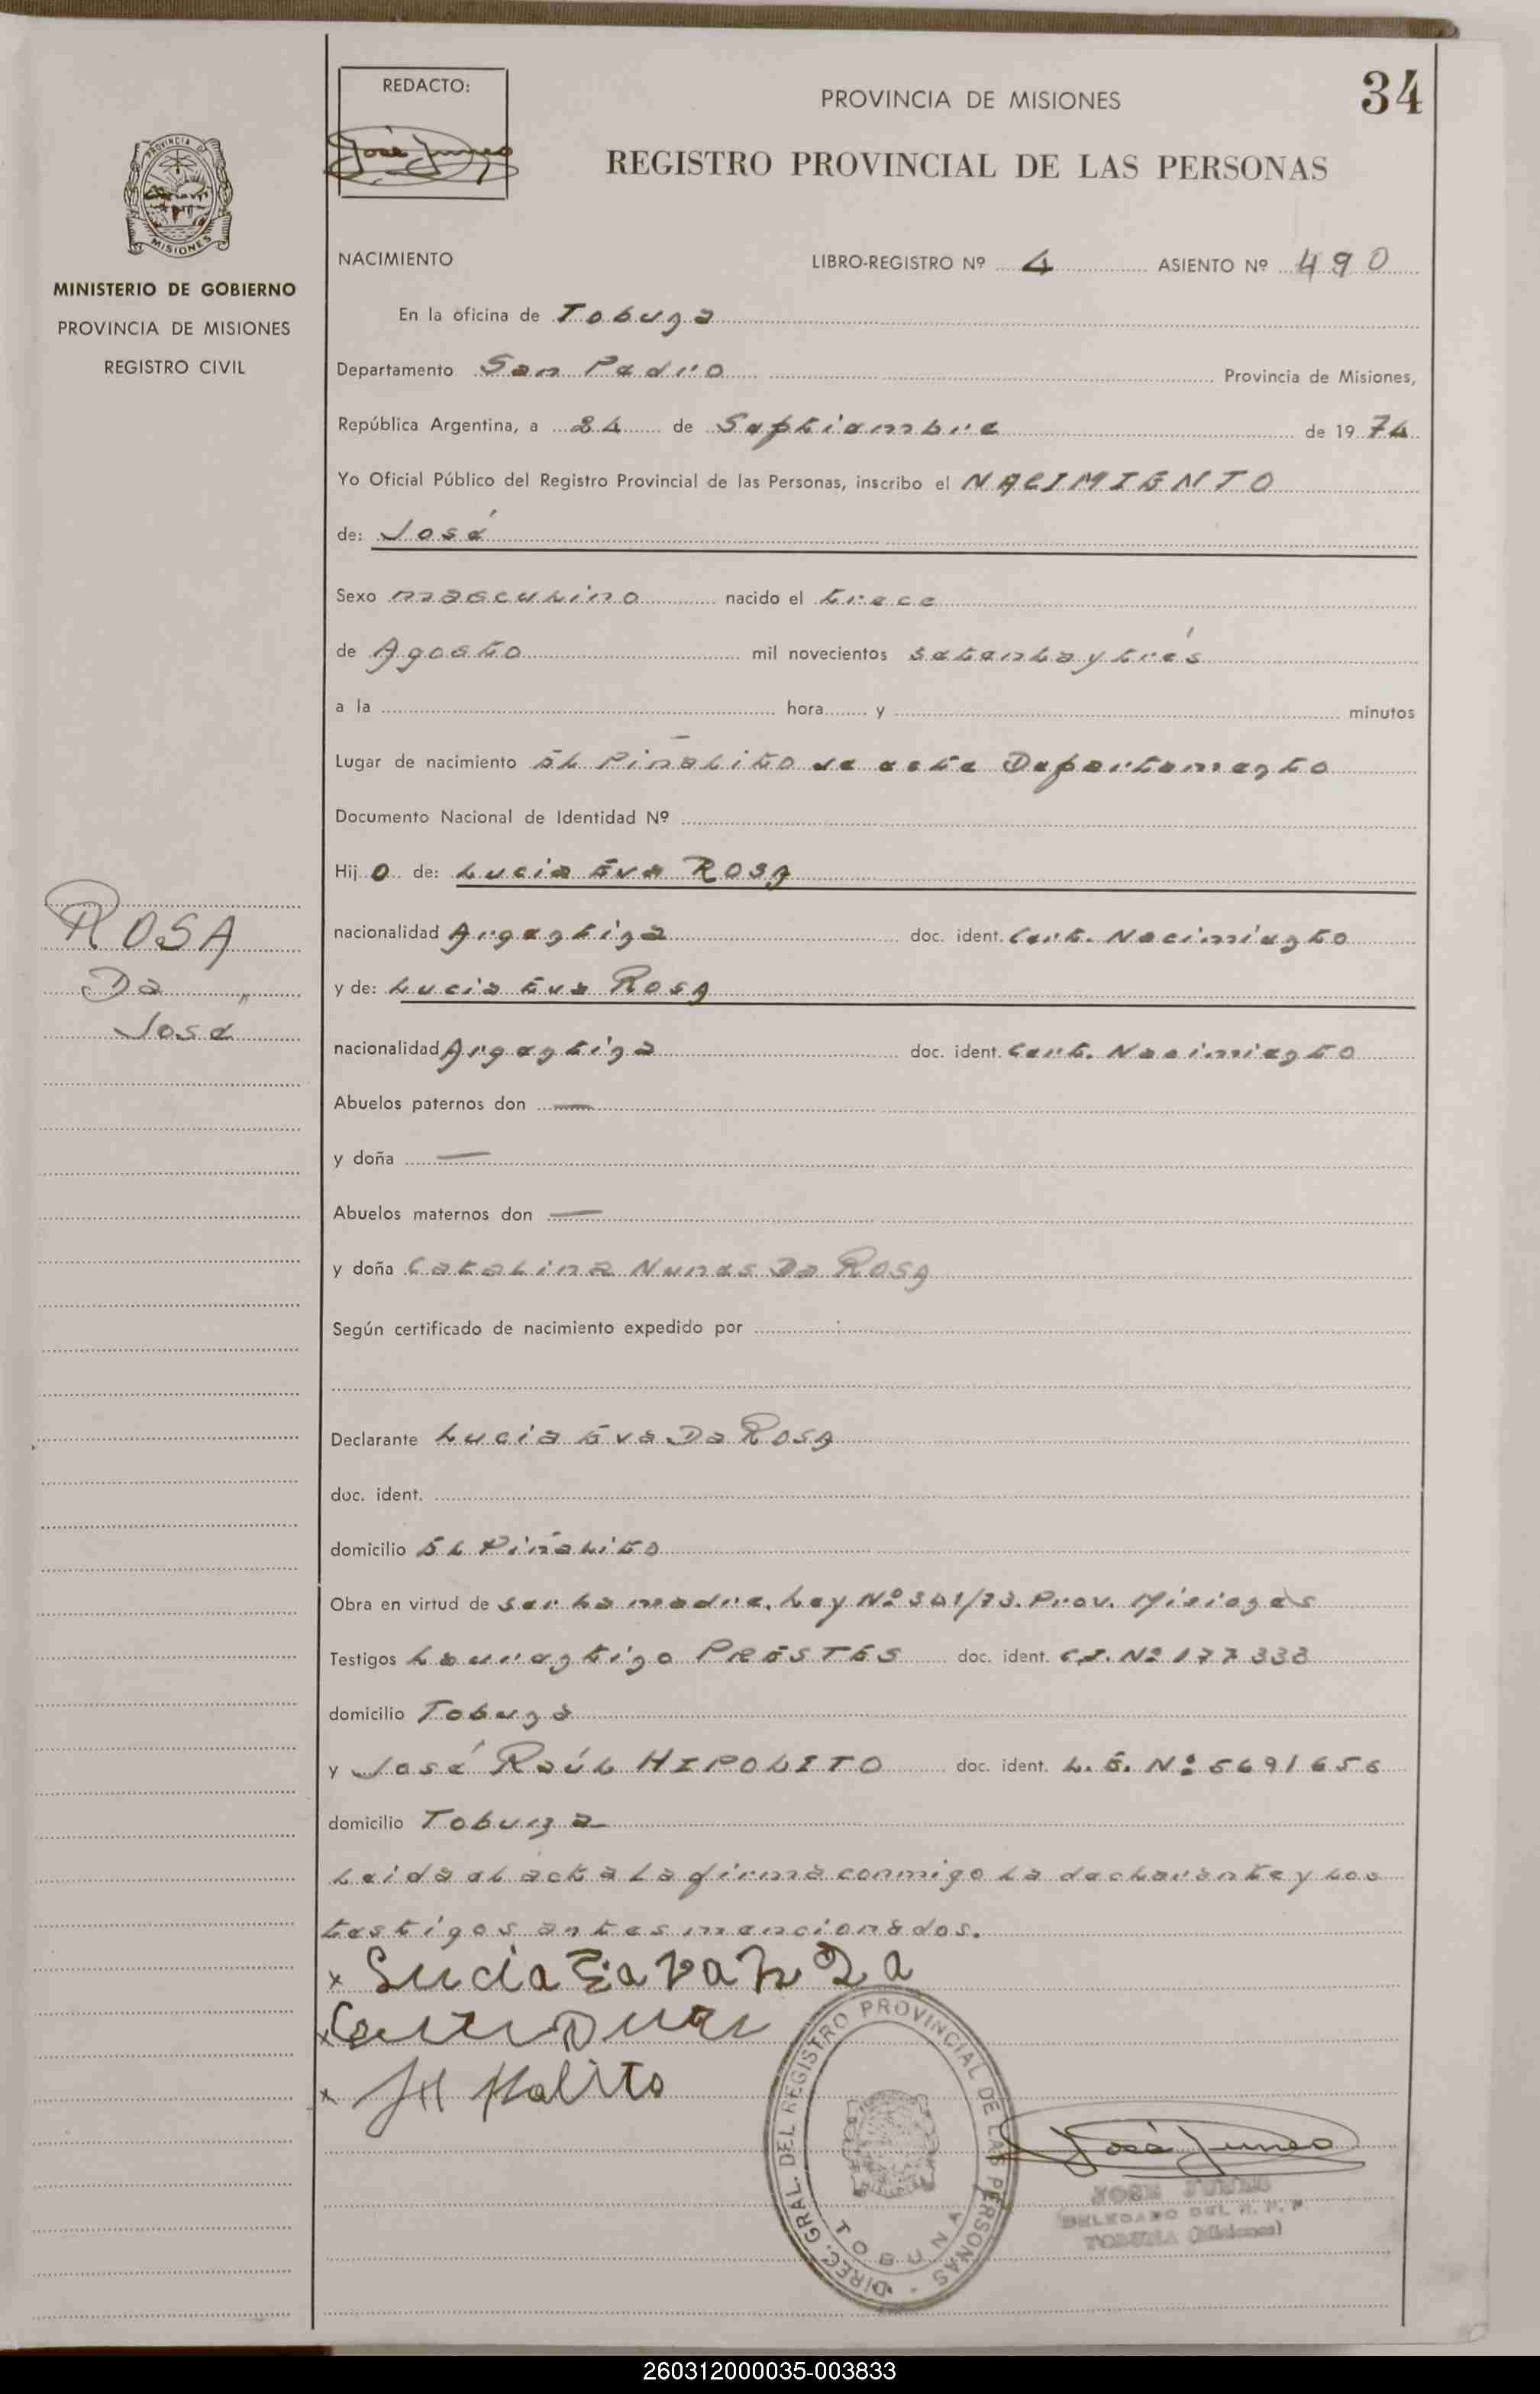 34
REDACTO:
José Juneo
PROVINCIA DE MISIONES
REGISTRO PROVINCIAL DE LAS PERSONAS
PROVINCIA DE
MISIONES
MINISTERIO DE GOBIERNO
PROVINCIA DE MISIONES
REGISTRO CIVIL
NACIMIENTO LIBRO-REGISTRO Nº 4 ASIENTO Nº 490
En la oficina de Tobuna
Departamento San Pedro Provincia de Misiones,
República Argentina, a 24 de Septiembre de 1974
Yo Oficial Público del Registro Provincial de las Personas, inscribo el NACIMIENTO
de: José
Sexo masculino nacido el trece
de Agosto mil novecientos setenta y trés
a la hora y minutos
Lugar de nacimiento El Piñalito de este Departamento
Documento Nacional de Identidad Nº
Hijo de: Lucia Eva ROSA
nacionalidad Argentina doc. ident. Cert. Nacimiento
y de: Lucia Eva Rosa
nacionalidad Argentina doc. ident. Cert. Nacimiento
ROSA
Da "
José
Abuelos paternos don —
y doña —
Abuelos maternos don —
y doña Catalina Nunes Da Rosa
Según certificado de nacimiento expedido por
Declarante Lucia Eva Da Rosa
doc. ident.
domicilio El Piñalito
Obra en virtud de ser la madre. Ley Nº 341/73. Prov. Misiones
Testigos Laurentino PRESTES doc. ident. C.I. Nº 177.333
domicilio Tobuna
y José Raúl HIPOLITO doc. ident. L.E. Nº 5691656
domicilio Tobuna
Leida el acta la firma conmigo la declarante y los
testigos antes mencionados.
x Lucia Eava
x
x
DIREC. GRAL. DEL REGISTRO PROVINCIAL DE LAS PERSONAS
TOBUNA
José Juneo
JOSE JUNEO
DELEGADO DEL R. P. P.
TOBUNA (Misiones)
260312000035-003833